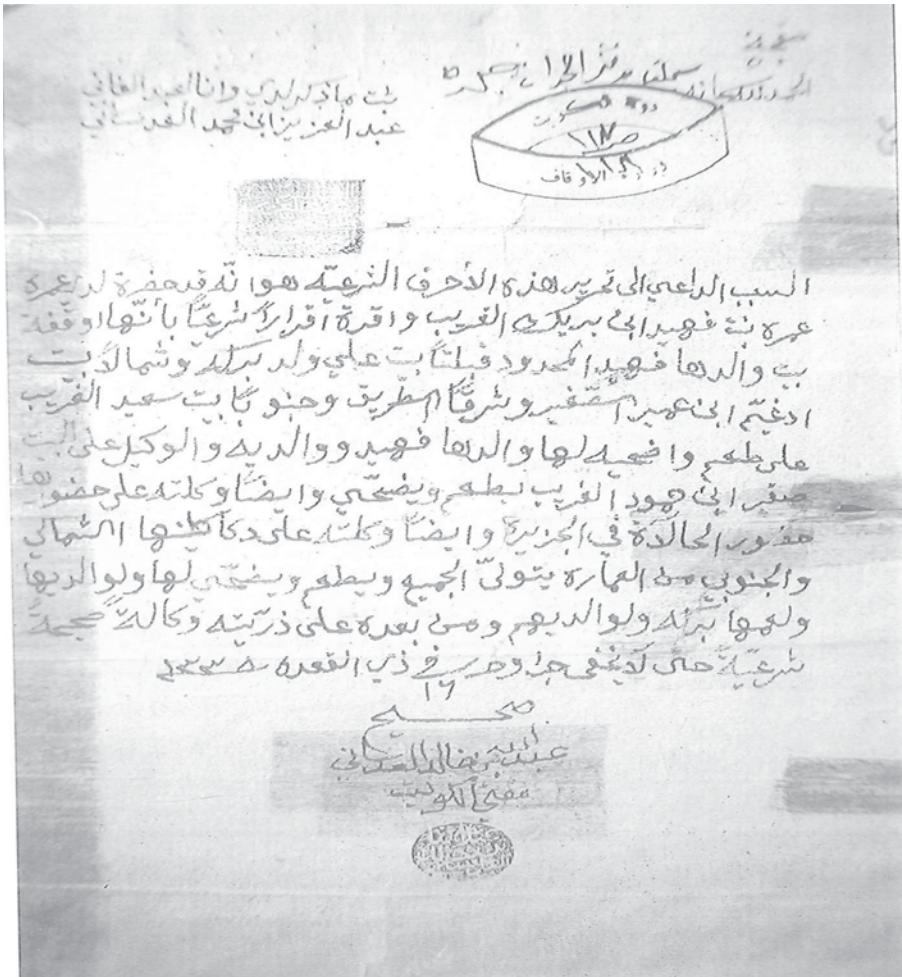 ثبت ما ذكر لدي وانا العبد الفاني
عبد العزيز ابن محمد العدساني
دولة الكويت
دائرة الاوقاف
السبب الداعي الى تحرير هذه الأحرف الشرعيّه هو انّه قد حضرة لدي عمره
عمره بنت فهيد ابن بريك القريب واقرة أقراراً شرعيّاً بأنّها اوقفة
بيت والدها فهيد المحدود قبلتاً بيت علي ولد بركه وشمالاً بيت
ادغيّم ابن عمير وشرقاً الطريق وجنوباً بيت سعيد القريب
على طعم واضحيه لها والدها فهيد ووالديه والوكيل على البيت
صقير ابن حمود القريب يطعم ويضحّي وايضاً وكلته على حضورها
حضور الخالدة في الجزيرة وايضاً وكلته على دكاكينها الشمالي
والجنوبي من العماره يتولّى الجميع ويطعم ويضحّي لها ولوالديها
ولعمها بركه ولوالديهم ومن بعده على ذرّيته وكالةً صحيحةً
شرعيّةً حتى لا يخفى جرا وحرر في ذي القعده
١٦
صحيح
عبد الله بن خالد العدساني
مفتي الكويت